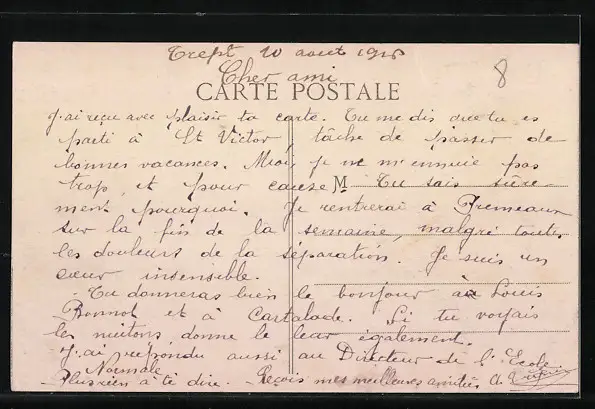 Trept 10 août 1918
8
Cher ami
CARTE POSTALE
J'ai reçu avec plaisir ta carte. Tu me dis que tu es
parti à St Victor, tâche de passer de
bonnes vacances. Moi, je ne m'ennuie pas
trop, et pour cause M Tu sais sûre-
ment pourquoi. Je rentrerai à Premeaux
sur la fin de la semaine, malgré toutes
les douleurs de la séparation. Je suis un
cœur insensible.
- Tu donneras bien le bonjour à Louis
Bonnot et à Cartalade. Si tu voyais
les donne le leur également.
J'ai répondu aussi au Directeur de l'Ecole
Normale
- Plus rien à te dire. - Reçois mes meilleures amitiés